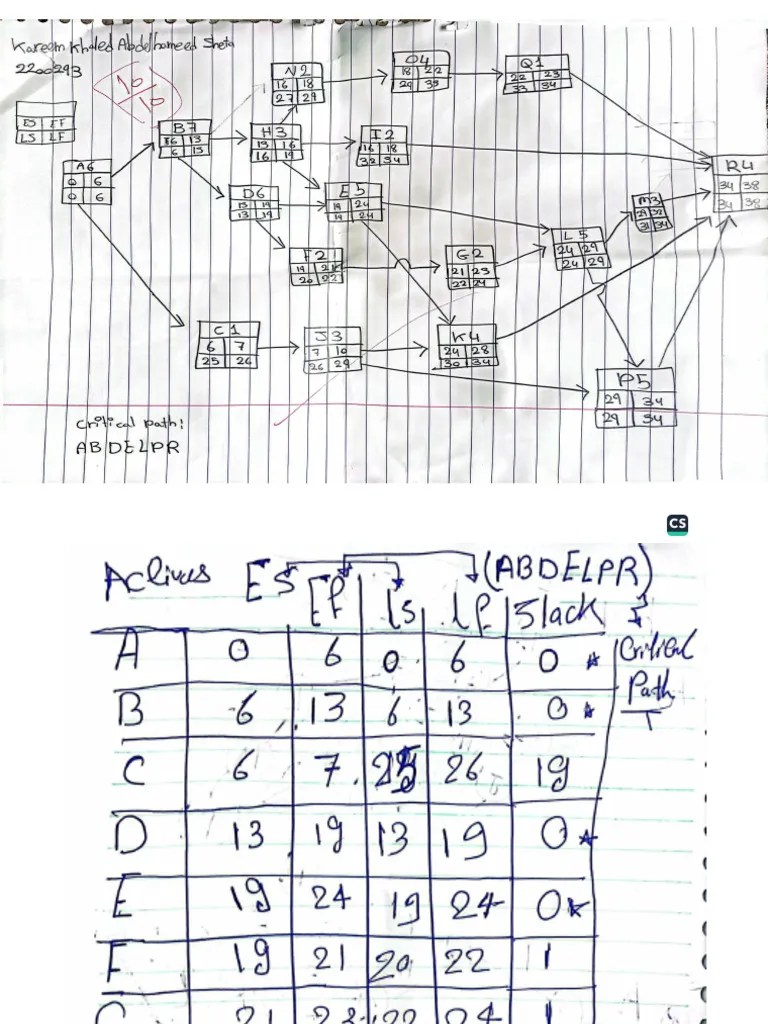 Kareem Khaled Abdelhameed Sheta
2200293
10/10
ES EF
LS LF
A6
0 6
0 6
B7
6 13
6 13
N2
16 18
27 29
O4
18 22
29 33
Q1
22 23
33 34
H3
13 16
16 19
I2
16 18
32 34
R4
34 38
34 38
D6
13 19
13 19
E5
19 24
19 24
M3
29 32
31 34
L5
24 29
24 29
F2
19 21
20 22
G2
21 23
22 24
C1
6 7
25 26
J3
7 10
26 29
K4
24 28
30 34
P5
29 34
29 34
Critical path:
ABDELPR
CS
(ABDELPR)
ES Ef ls lf Slack
Critical
Path
A 0 6 0 6 0 *
B 6 13 6 13 0 *
C 6 7 25 26 19
D 13 19 13 19 0 *
E 19 24 19 24 0 *
F 19 21 20 22 1
G 21 23 22 24 1